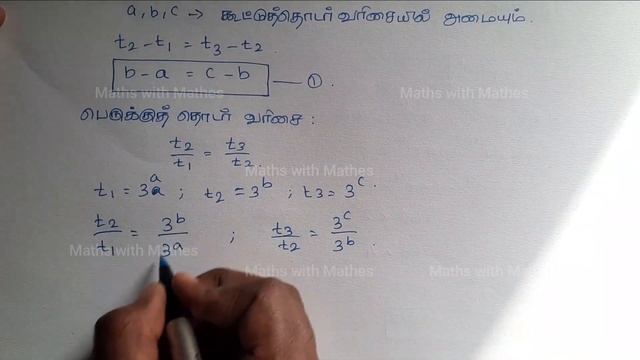 a, b, c → கூட்டுத்தொடர் வரிசையில் அமையும்.
t₂ - t₁ = t₃ - t₂
b - a = c - b —— ①
Maths with Mathes Maths with Mathes
பெருக்குத் தொடர் வரிசை :
t₂/t₁ = t₃/t₂.
Maths with Mathes
t₁ = 3ᵃ ; t₂ = 3ᵇ ; t₃ = 3ᶜ.
t₂/t₁ = 3ᵇ/3ᵃ ; t₃/t₂ = 3ᶜ/3ᵇ.
Maths with Mathes
Maths with Mathes Maths with Mathes